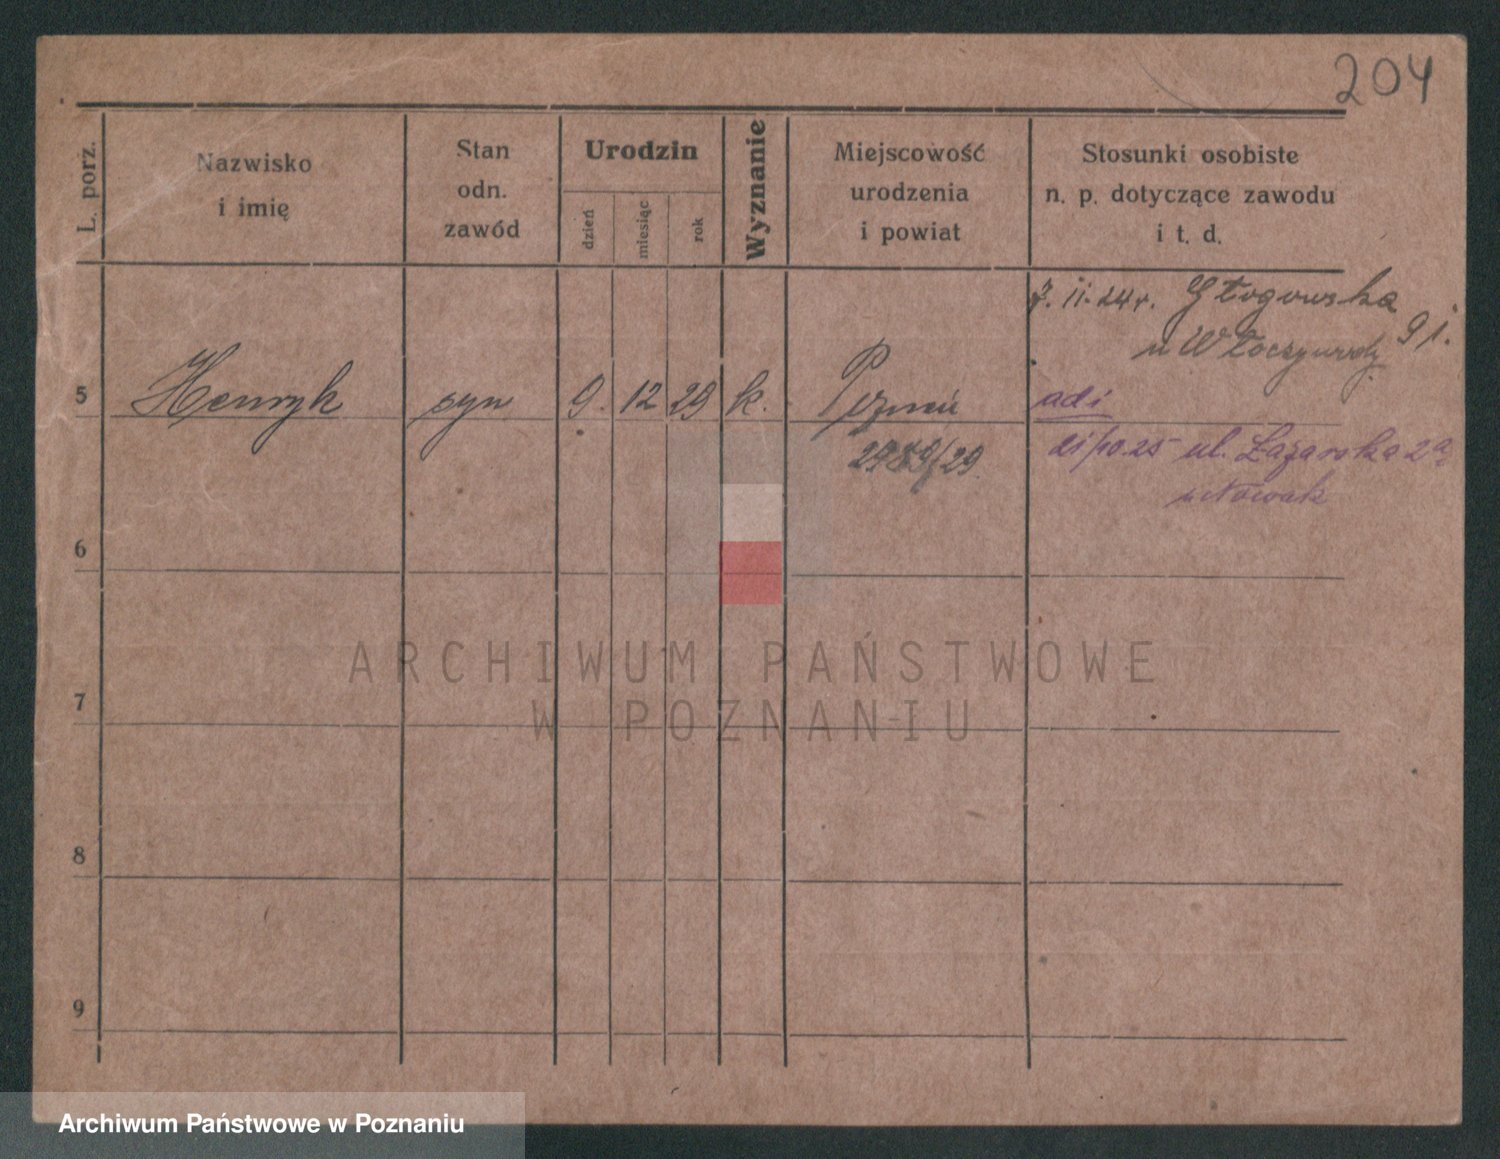 204
L. porz.
Nazwisko
i imię
Stan
odn.
zawód
Urodzin
dzień
miesiąc
rok
Wyznanie
Miejscowość
urodzenia
i powiat
Stosunki osobiste
n. p. dotyczące zawodu
i t. d.
7. 11. 24 r. Głogowska
91.
5 Henryk syn 9. 12 29 k. Poznań
adi
21/10.25 ul. Łazarska 2a
u Nowak
6
7
8
9
ARCHIWUM PAŃSTWOWE
W POZNANIU
Archiwum Państwowe w Poznaniu